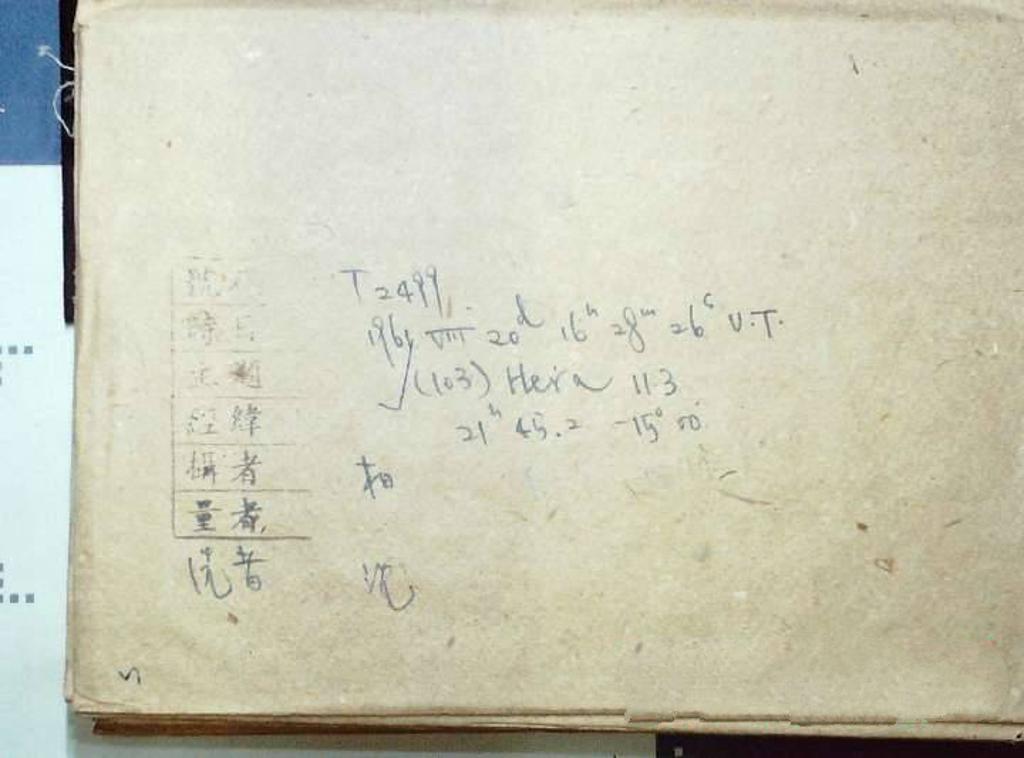 號 T2499
時日 1961 VIII 20d 16h 28m 26s U.T.
主題 (103) Hera 11.3
經緯 21h 45.2 -15° 00'
攝者
量者
洗者 沈